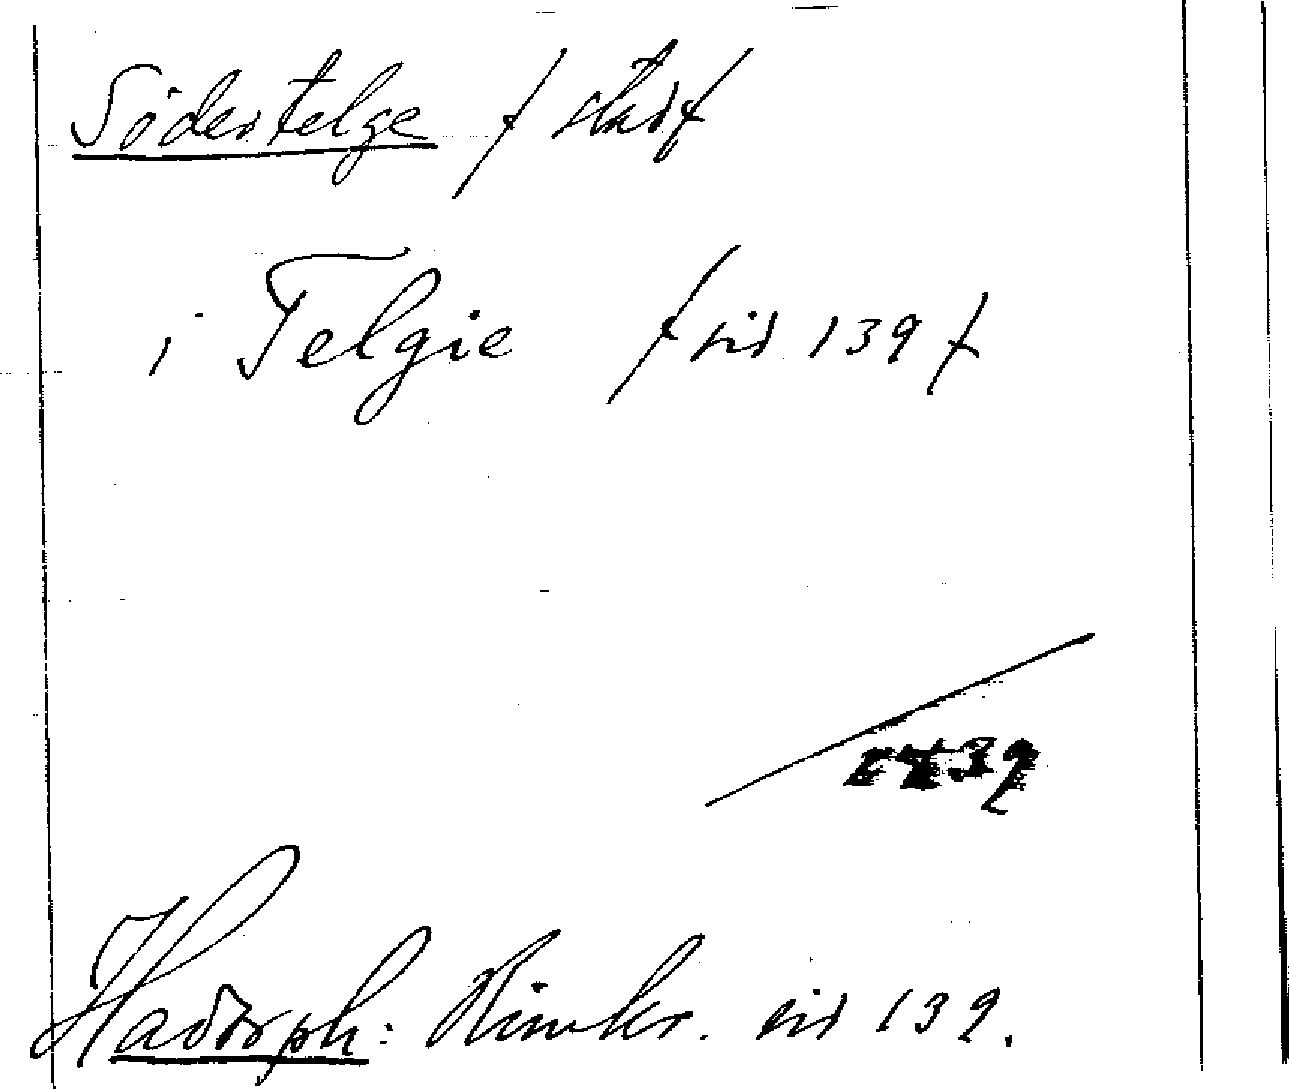 Södertelge / stad /
i Telgie / sid 139 /
1439
Hadorph: Rimkr. sid 139.